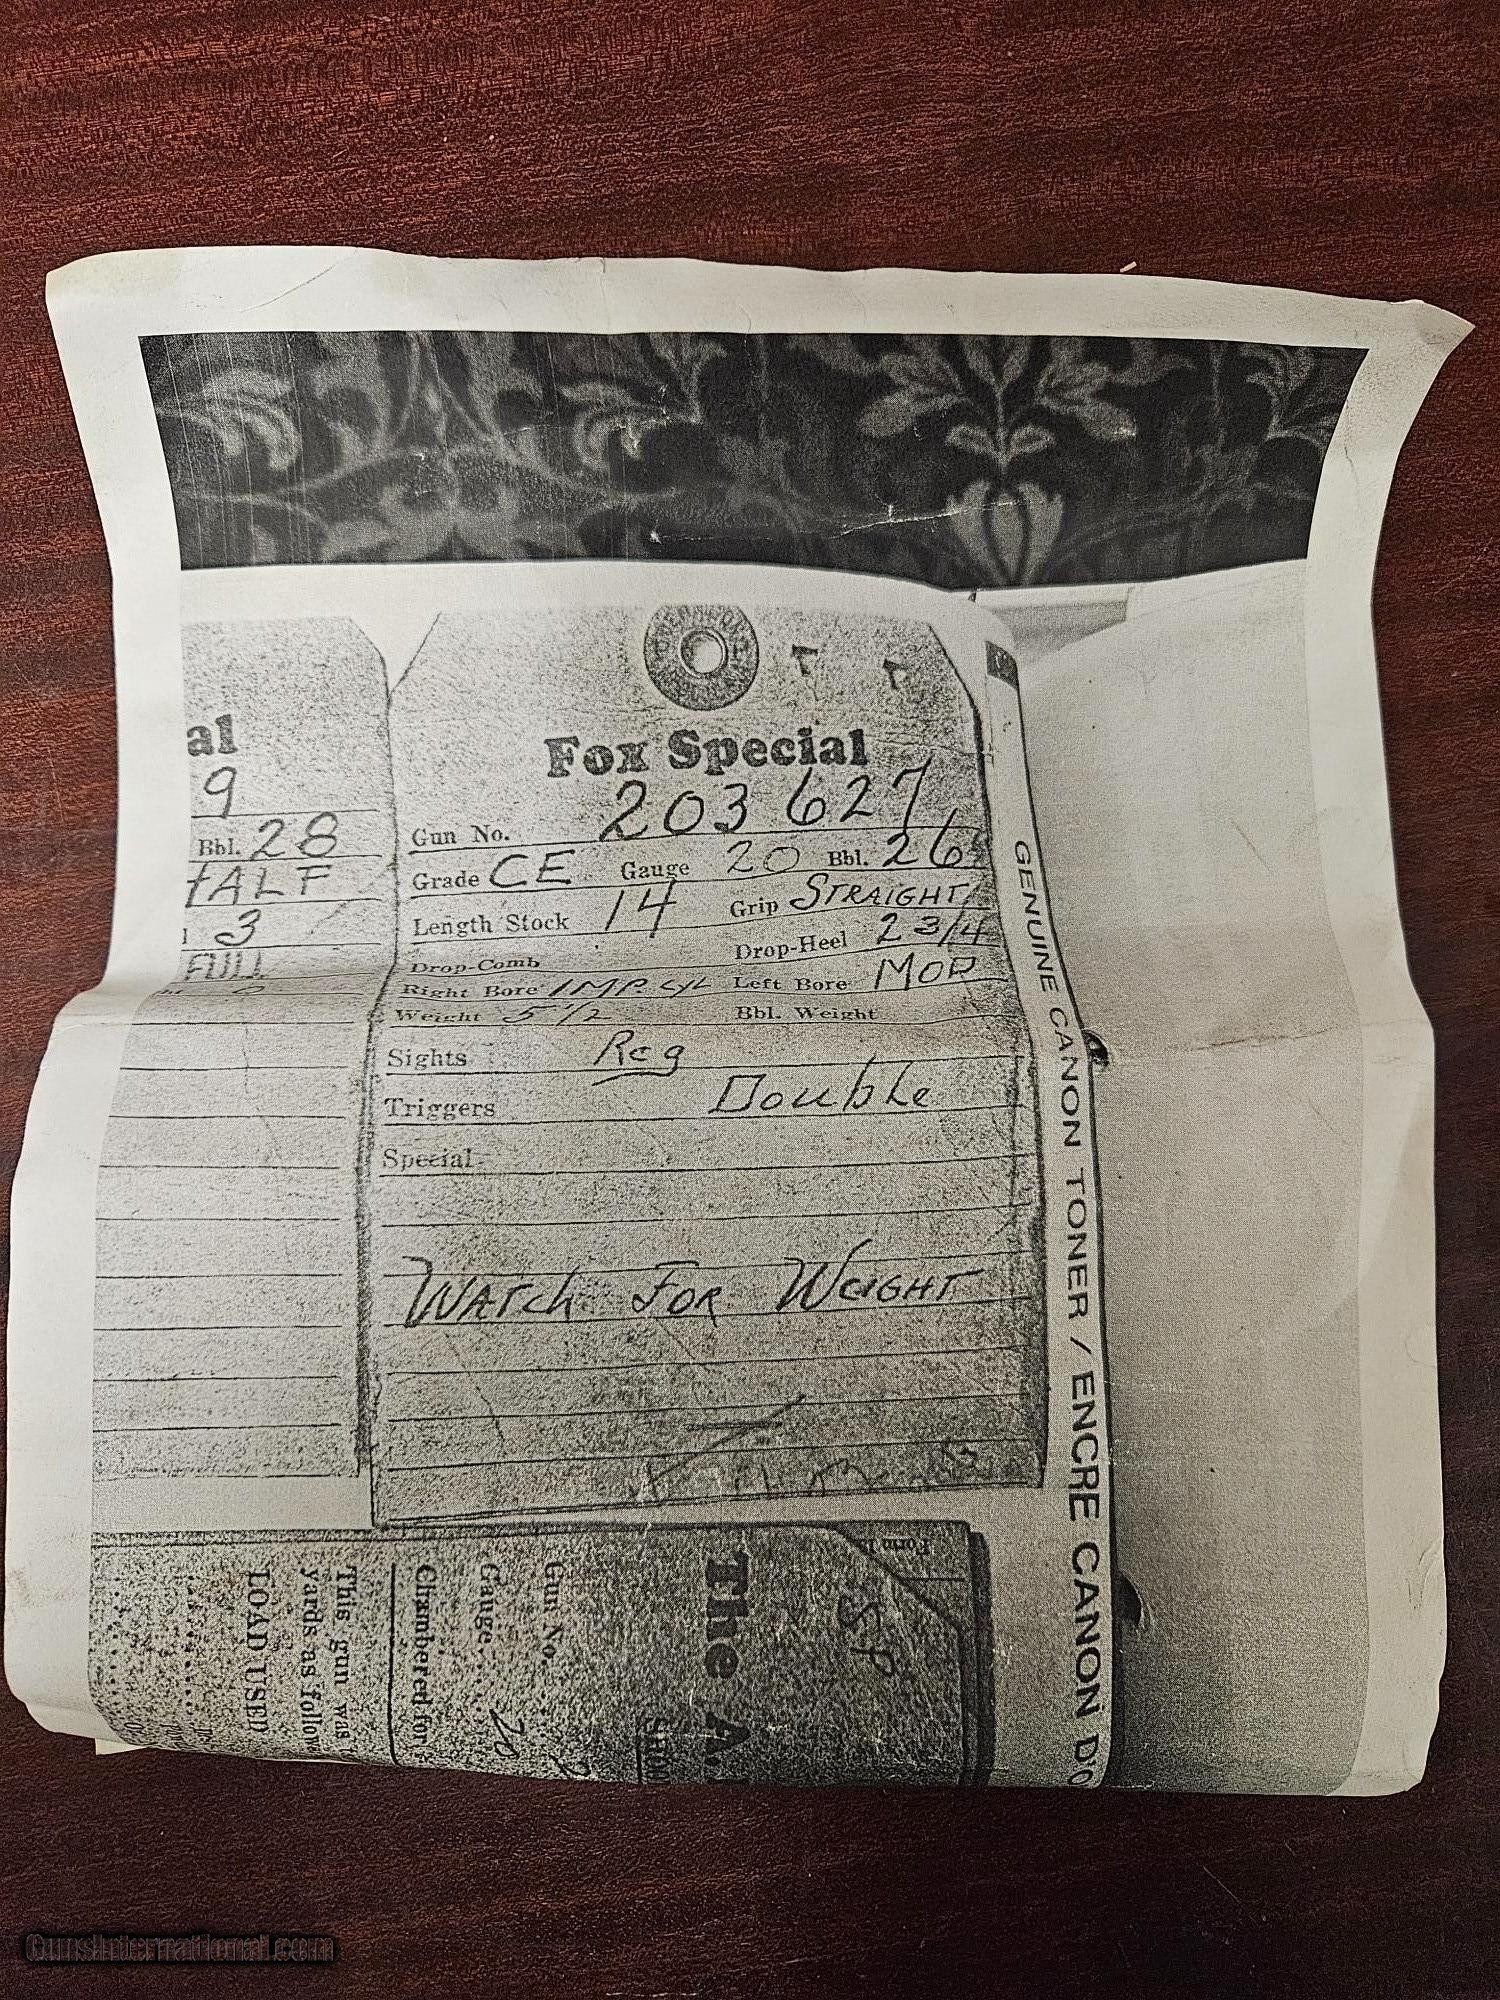 al
9
Bbl. 28
HALF
3
FULL
Fox Special
Gun No. 203627
Grade CE Gauge 20 Bbl. 26
Length Stock 14 Grip STRAIGHT
Drop-Comb Drop-Heel 2 3/4
Right Bore IMP. CYL Left Bore MOD
Weight 5 1/2 Bbl. Weight
Sights Reg
Triggers Double
Special
WATCH FOR WEIGHT
GENUINE CANON TONER / ENCRE CANON D'O
SP
The A.
Gun No. 2
Gauge 20
Chambered for
This gun was
yards as follow
LOAD USED
GunsInternational.com